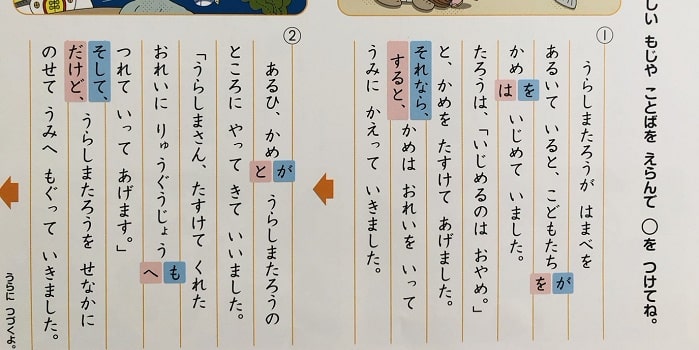 しい もじや ことばを えらんで ◯を つけてね。
①
うらしまたろうが はまべを
あるいて いると、こどもたち が を
かめ を は いじめて いました。
たろうは、「いじめるのは おやめ。」
と、かめを たすけて あげました。
それなら、 すると、 かめは おれいを いって
うみに かえって いきました。
②
あるひ、かめ が と うらしまたろうの
ところに やって きて いいました。
「うらしまさん、たすけて くれた
おれいに りゅうぐうじょう も へ
つれて いって あげます。」
そして、 だけど、 うらしまたろうを せなかに
のせて うみへ もぐって いきました。
うらに つづくよ。